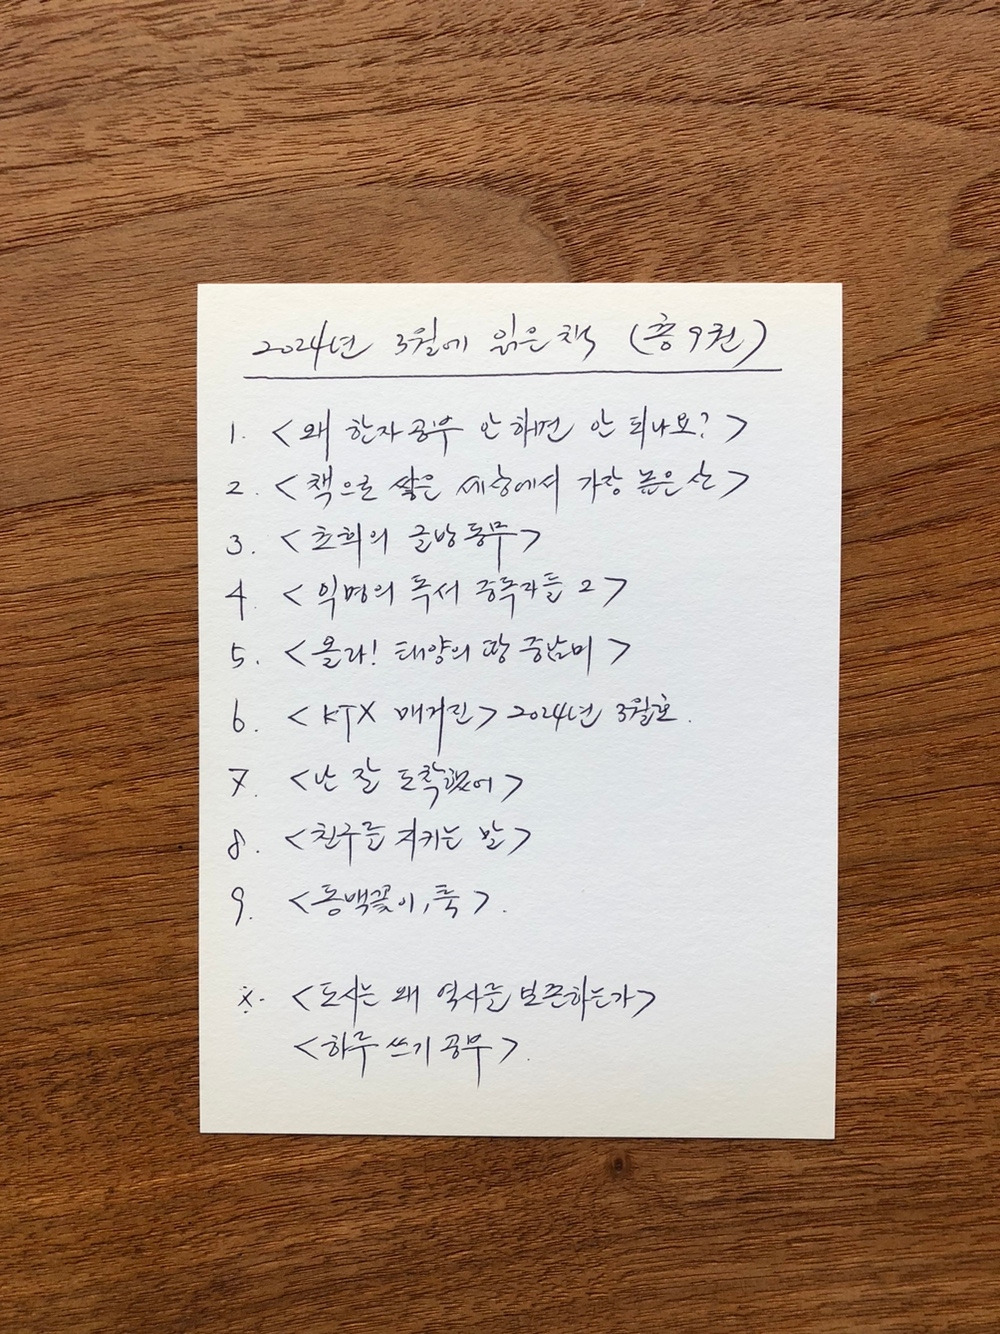 2024년 3월에 읽은 책 (총 9권)
1. <왜 한자 공부 안 하면 안 되나요?>
2. <책으로 쌓은 세상에서 가장 높은 산>
3. <초희의 글방 동무>
4. <익명의 독서 중독자들 2>
5. <올라! 태양의 땅 중남미>
6. <KTX 매거진> 2024년 3월호.
7. <난 잘 도착했어>
8. <친구를 지키는 말>
9. <동백꽃이, 툭>.
※. <도시는 왜 역사를 보존하는가>
<하루 쓰기 공부>.